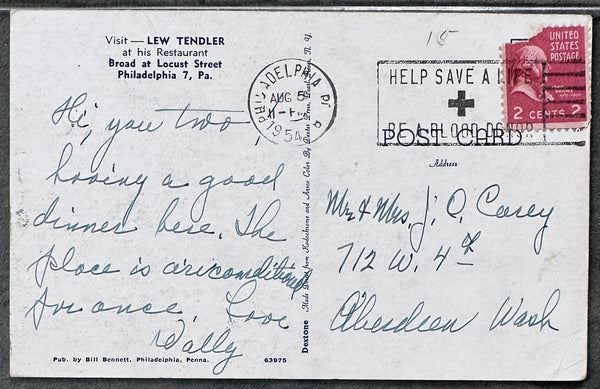 Visit — LEW TENDLER
at his Restaurant
Broad at Locust Street
Philadelphia 7, Pa.
Hi, you two
having a good
dinner here. The
place is airconditioned
for once. Love
Wally
Pub. by Bill Bennett, Philadelphia, Penna.
63975
Dextone Made Direct from Kodachrome and Ansco Color By Dexter Press, Pearl River, N. Y.
15
PHILADELPHIA, PA.
AUG 5
1954
HELP SAVE A LIFE
BE A BLOOD DONOR
UNITED
STATES
POSTAGE
2 CENTS 2
POST CARD
Address
Mr & Mrs. J. O. Carey
712 W. 4th
Aberdeen Wash